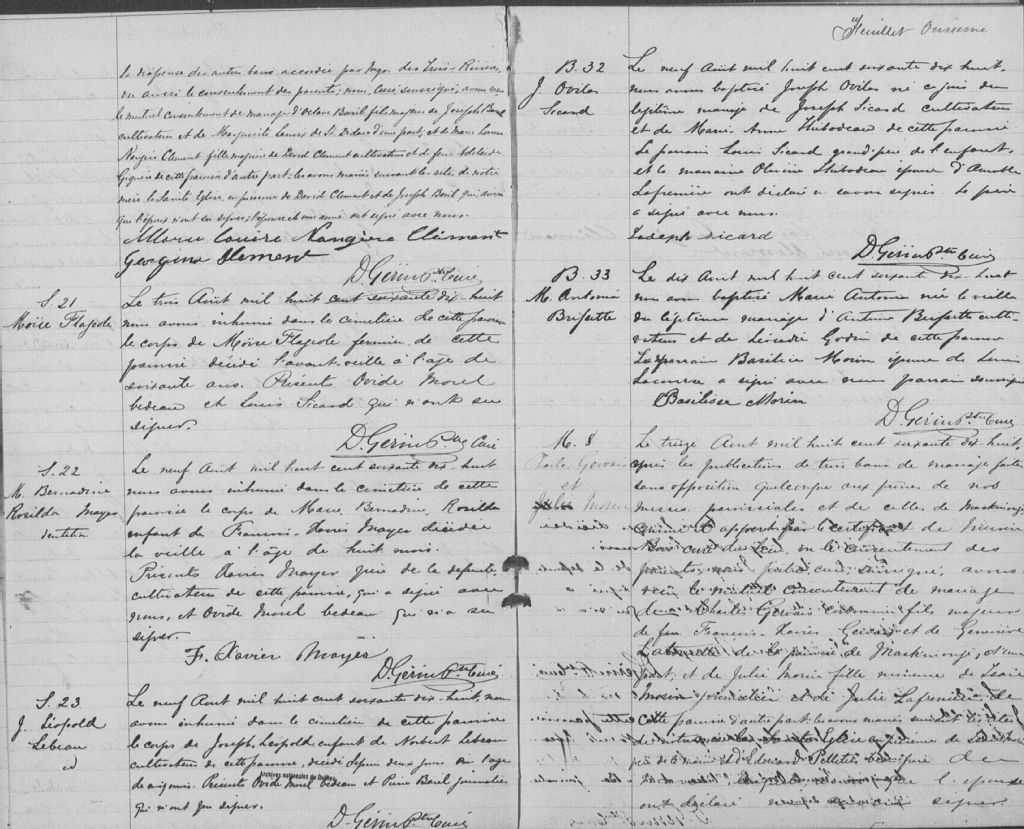 la dispense des autres bans accordée par Mgr des Trois-Rivières
vu aussi le consentement des parents; nous, curé soussigné, avons reçu
le mutuel consentement de mariage d'Octave Baril fils majeur de Joseph Baril
cultivateur et de Marguerite Lenoir de St. Didace d'une part, et de Marie Louise
Nangère Clément fille majeure de David Clement cultivateur et de feu Adelaide
de cette paroisse d'autre part: les avons mariés suivant les rites de notre
mère la Sainte Eglise, en présence de David Clement et de Joseph Baril qui, ainsi
que l'époux n'ont su signer; l'épouse et une amie ont signé avec nous.
Marie Louise Nangère Clément
Georgina Clement
D. Gérin Ptre Curé
S. 21
Moïse Flageole
Le trois Août mil huit cent soixante dix-huit
nous avons inhumé dans le cimetière de cette paroisse
le corps de Moïse Flageole fermier de cette
paroisse décédé l'avant-veille à l'age de
soixante ans. Présents Ovide Morel
bedeau et Louis Sicard qui n'ont su
signer.
D. Gérin Ptre Curé
S. 22
M. Bernadine
Rosilda Mayer
Le neuf Août mil huit cent soixante dix-huit
nous avons inhumé dans le cimetière de cette
paroisse le corps de Marie, Bernadine, Rosilda
enfant de François-Xavier Mayer décédée
la veille à l'âge de huit mois.
Présents Xavier Mayer père de la défunte,
cultivateur de cette paroisse, qui a signé avec
nous, et Ovide Morel bedeau qui n'a su
signer.
F. Xavier Mayer
D. Gérin Ptre Curé
S. 23
J. Léopold
Lebeau
Le neuf Août mil huit cent soixante dix-huit, nous
avons inhumé dans le cimetière de cette paroisse
le corps de Joseph, Leopold, enfant de Norbert Lebeau
cultivateur de cette paroisse, décédé depuis deux jours à l'age
de Présents Ovide Morel bedeau et Pierre Baril journalier
qui n'ont pu signer.
Archives nationales du Québec
D. Gérin Ptre Curé
Feuillet Onzième
B. 32
J. Ovilas
Sicard
Le neuf Août mil huit cent soixante dix huit
nous avons baptisé Joseph Ovilas né ce jour du
légitime mariage de Joseph Sicard cultivateur
et de Marie Anne Thibodeau de cette paroisse
Le parrain Louis Sicard grand'père de l'enfant
et la marraine Thibodeau épouse d'
Lafrenière ont déclaré ne savoir signer. Le père
a signé avec nous.
Joseph Sicard
D. Gérin Ptre Curé
B. 33
M. Antonia
Brissette
Le dix Août mil huit cent soixante dix-huit
nous avons baptisé Marie Antonia née la veille
du légitime mariage d' Brissette culti-
vateur et de de cette paroisse
La marraine Basilice Morin épouse de Louis
a signé avec nous parrain soussigné
Basilisse Morin
D. Gérin Ptre Curé
M. 8
Charles Gervais
et
Julie Morin
Le treize Août mil huit cent soixante dix-huit,
après les publications de trois bans de mariage faites
sans opposition quelconque aux prônes de nos
messes paroissiales et de celles de Maskinongé
comme il appert par le certificat de
curé du lieu, vu le consentement des
parents; nous prêtre curé soussigné, avons
reçu le mutuel consentement de mariage
de Charles Gervais fils majeur
de feu François-Xavier Gervais et de Geneviève
de la paroisse de Maskinongé, d'une
part, et de Julie Morin fille mineure de
Morin et de Julie Lafrenière de
cette paroisse d'autre part: les avons mariés suivant les rites
de notre mère la Sainte Eglise en présence de
père de et d'Edouard Pelletier
l'épouse
ont déclaré ne savoir signer.